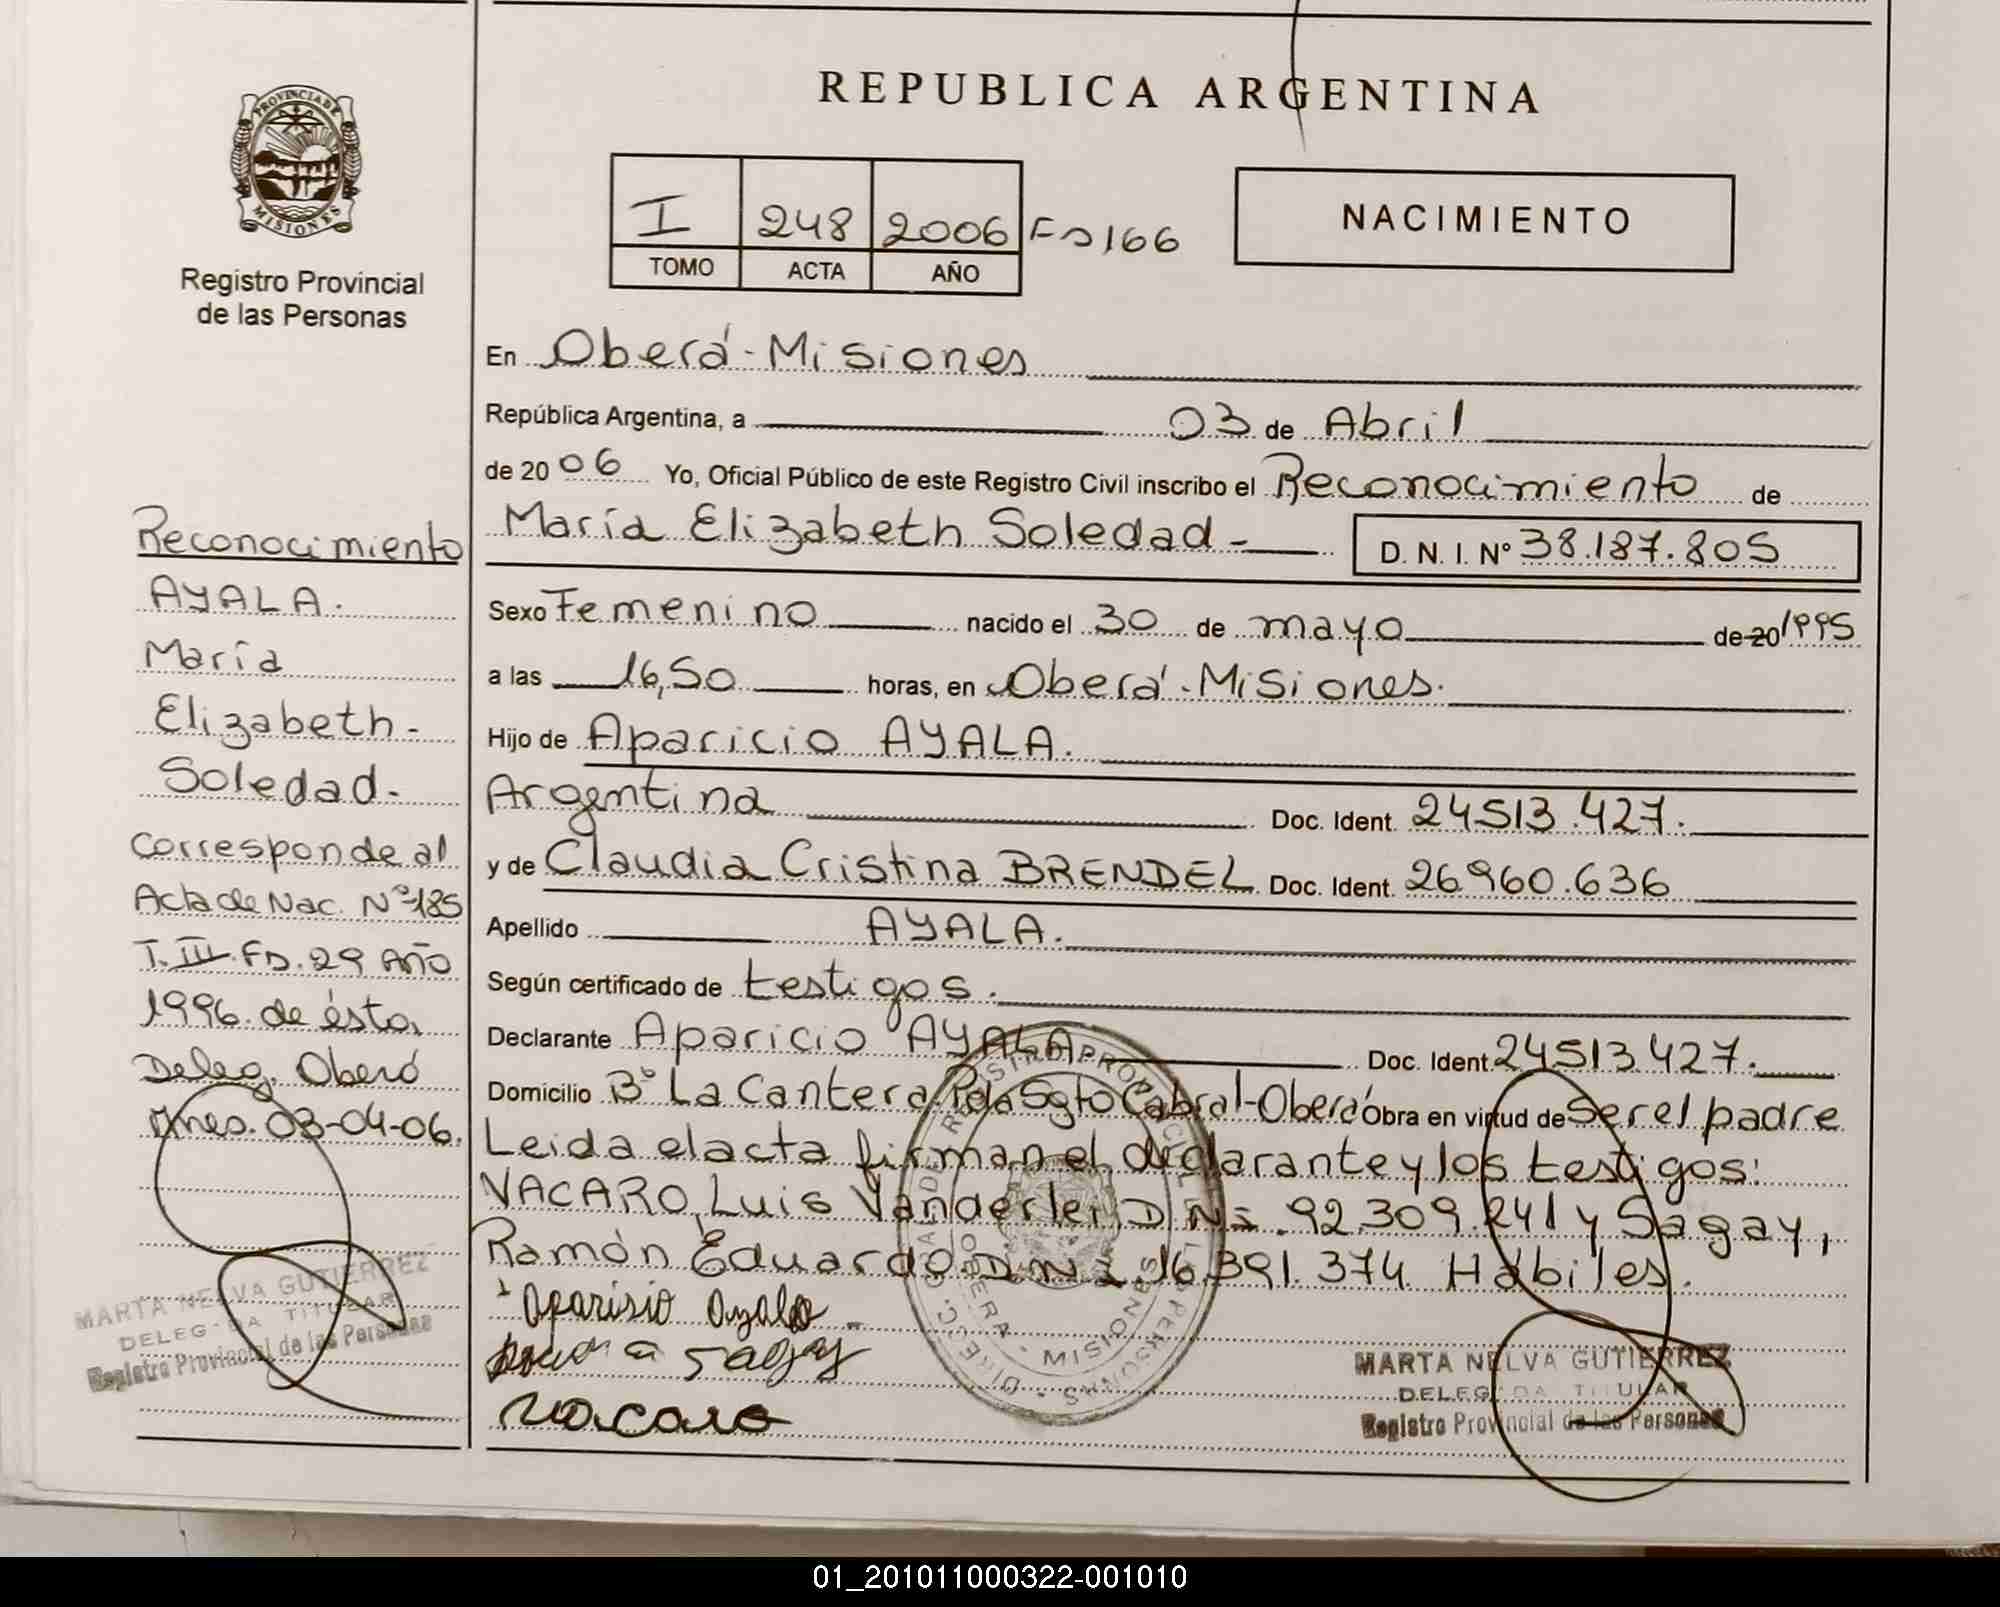 REPUBLICA ARGENTINA
PROVINCIA DE
MISIONES
Registro Provincial
de las Personas
I 248 2006 Fo 166
TOMO ACTA AÑO
NACIMIENTO
En Oberá - Misiones
República Argentina, a 03 de Abril
de 20 06 Yo, Oficial Público de este Registro Civil inscribo el Reconocimiento de
María Elizabeth Soledad - D. N. I. Nº 38.187.805
Sexo Femenino nacido el 30 de mayo de 20 1995
a las 16,50 horas, en Oberá - Misiones.
Hijo de Aparicio AYALA.
Argentina Doc. Ident. 24513.427.
y de Claudia Cristina BRENDEL Doc. Ident. 26.960.636
Apellido AYALA.
Según certificado de testigos.
Declarante Aparicio AYALA Doc. Ident. 24513427.
Domicilio Bº La Cantera Pda Sgto Cabral - Oberá Obra en virtud de Ser el padre
Leida el acta firman el declarante y los testigos:
VACARO, Luis Vanderlei D N I. 92.309.241 y Sagay,
Ramón Eduardo D N I. 16.391.374 Hábiles.
Aparisio Ayala
Sagay
Vacaro
Reconocimiento
AYALA.
María
Elizabeth -
Soledad -
Corresponde al
Acta de Nac. Nº 185
T. III. Fo. 29 Año
1996. de ésta
Deleg. Oberá
Mnes. 03-04-06.
MARTA NELVA GUTIERREZ
DELEGADA TITULAR
Registro Provincial de las Personas
MARTA NELVA GUTIERREZ
DELEGADA TITULAR
Registro Provincial de las Personas
OBERA - MISIONES
01_201011000322-001010